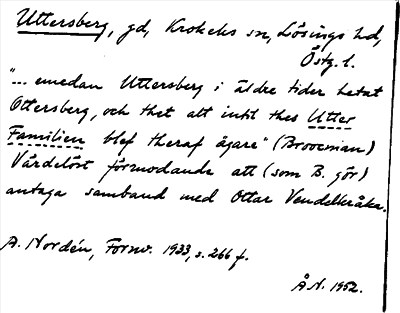 Uttersberg, gd, Krokeks sn, Lösings hd,
Östg. l.
"... emedan Uttersberg i äldre tider hetat
Ottersberg, och thet alt intil thes Utter
Familien blef theraf ägare" (Broocman)
Värdelöst förmodande att (som B. gör)
antaga samband med Ottar Vendelkråka.
A. Nordén, Fornv. 1933, s. 266 f.
Å N. 1952.